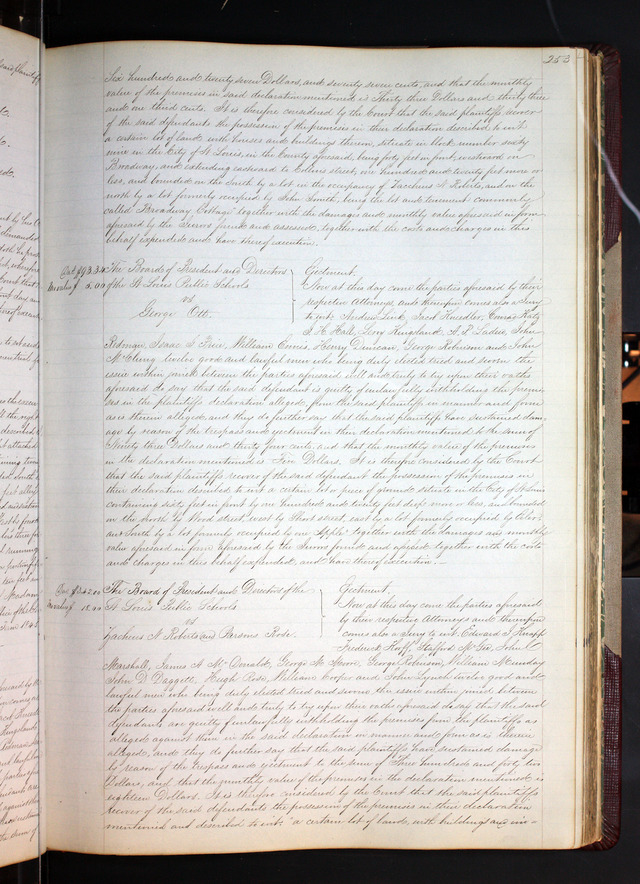 253
Six hundred and twenty seven Dollars, and seventy seven cents, and that the monthly
value of the premises in said declaration mentioned is Thirty three Dollars and thirty three
and one third cents. It is therefore considered by the Court that the said plaintiffs recover
of the said defendants the possession of the premises in their declaration described to wit
a certain lot of land with houses and buildings thereon, situate in block number sixty
nine in the City of St Louis, in the County aforesaid, being forty feet in front, westward on
Broadway, and extending eastward to Collins street, one hundred and twenty feet more or
less, and bounded on the South by a lot in the occupancy of Zaccheus N. Roberts, and on the
north by a lot formerly occupied by John Smith, being the lot and tenement commonly
called "Broadway Cottage" together with the damages and monthly value aforesaid in form
aforesaid by the Jurors found and assessed, together with the costs and charges in this
behalf expended and have thereof execution.
The Board of President and Directors
of the St Louis Public Schools
vs
George Ott.
Ejectment.
Now at this day come the parties aforesaid by their
respective Attorneys, and thereupon comes also a Jury
to wit: Andrew Link, Jacob
Hall,
Isaac William Henry Duncan, George Robinson and John
twelve good and lawful men who being duly elected tried and sworn the
issue within joined between the parties aforesaid well and truly to try upon their oaths
aforesaid do say that the said defendant is guilty of unlawfully withholding the premi-
ses in the plaintiffs declaration alleged, from the said plaintiffs in manner and form
as is therein alleged, and they do further say that the said plaintiffs have sustained dam-
age by reason of the trespass and ejectment in their declaration mentioned to the sum of
Ninety three Dollars and thirty four cents, and that the monthly value of the premises
in the declaration mentioned is Five Dollars. It is therefore considered by the Court
that the said plaintiffs recover of the said defendant the possession of the premises in
their declaration described to wit a certain lot or piece of ground situate in the City of St Louis
containing sixty feet in front by one hundred and twenty feet deep more or less, and bounded
on the north by Wood street, west by Short street, east by a lot formerly occupied by
and South by a lot formerly occupied by one "Apple" together with the damages and monthly
value aforesaid in form aforesaid by the Jurors found and assessed together with the costs
and charges in this behalf expended, and have thereof execution.
The Board of President and Directors of the
St Louis Public Schools
vs
Zacheus N Roberts and Parsons Rose.
Ejectment.
Now at this day come the parties aforesaid
by their respective Attorneys and thereupon
comes also a Jury to wit: Edward Knapp
Frederick John
Marshall, James A McDonald, George George Robinson, William
John D Daggett, Hugh Rose, William Cooper and John Lynch twelve good and
lawful men who being duly elected tried and sworn, the issue within joined between
the parties aforesaid well and truly to try upon their oaths aforesaid do say that the said
defendants are guilty of unlawfully withholding the premises from the plaintiffs as
alleged against them in the said declaration in manner and form as is therein
alleged, and they do further say that the said plaintiffs have sustained damage
by reason of the trespass and ejectment to the sum of Three hundred and forty two
Dollars, and that the monthly value of the premises in the declaration mentioned is
eighteen Dollars. It is therefore considered by the Court that the said plaintiffs
recover of the said defendants the possession of the premises in their declaration
mentioned and described to wit: "a certain lot of land, with buildings and im-